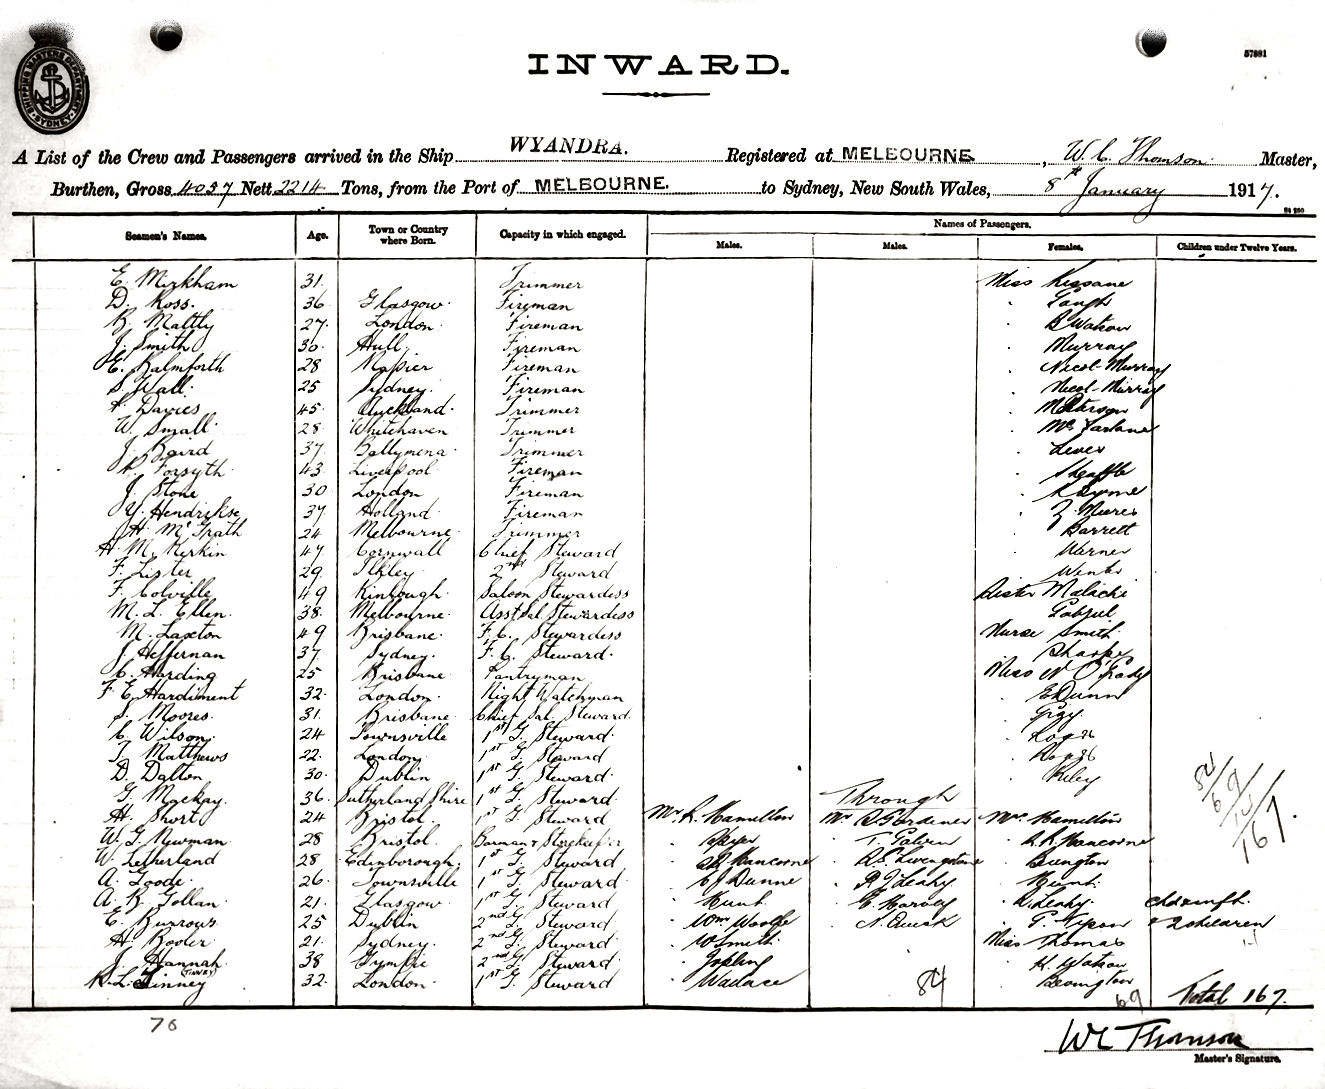 57881
INWARD.
SHIPPING MASTERS DEPARTMENT SYDNEY
A List of the Crew and Passengers arrived in the Ship WYANDRA. Registered at MELBOURNE. , W. C. Thomson. Master,
Burthen, Gross 4037 Nett 2214 Tons, from the Port of MELBOURNE. to Sydney, New South Wales, 8th January 1917.
Names of Passengers.
Seamen's Names. Age. Town or Country where Born. Capacity in which engaged. Males. Males. Females. Children under Twelve Years.
E. Mirkham 31. Trimmer Miss Kissane
D. Ross. 36 Glasgow. Fireman " Gough
R. Maltly 27. London. Fireman " B Watson
J. Smith 30. Hull. Fireman " Murray
E. Balmforth 28 Napier Fireman " Nicol-Murray
S. Wall. 25 Sydney. Fireman " Nicol-Murray
A. Davies 45. Auckland. Trimmer
W. Small. 28 Whitehaven Trimmer " McFarlane
J. Baird 37. Ballymena. Trimmer
Forsyth 43 Liverpool Fireman
J. Stone 30 London Fireman
Hendrikse 37 Holland. Fireman
J H. McGrath 24 Melbourne. Trimmer " Barrett
A. M. Kerkin 47 Cornwall Chief Steward " Warner
F. Lister 29 Ilkley. 2nd Steward " Winter
F. Colville 49 Kinlough. Saloon Stewardess Sister Malachi
M. L. Ellen. 38. Melbourne. Asst Sal. Stewardess
M. Laxton 49 Brisbane. F. C. Stewardess Nurse Smith.
J. Heffernan 37 Sydney. F. C. Steward. " Sharpe
C. Harding 25 Brisbane Pantryman Miss N O'Grady
F. E. Hardiment 32. London. Night Watchman " E Dunn
S. Moores. 31. Brisbane Chief Sal. Steward.
C. Wilson. 24 Townsville 1st G. Steward.
T. Matthews 22. London 1st G. Steward
D. Dalton 30. Dublin 1st G. Steward. " Riley
G. Mackay. 36. Sutherland Shire 1st G. Steward. Through
H. Short 24 Bristol. 1st G. Steward Mr R. Hamilton Mr R Gardener Mrs Hamilton
W. G. Newman 28 Bristol. Barman & Storekeeper
W. Letherland 28 Edinborough. 1st G. Steward " Hancorne " Livingstone
A. Goode. 26. Townsville 1st G. Steward " Dunne " Leahy " Hunt.
A. R. Tollan. 21. Glasgow. 1st G. Steward " Hunt " E. Harvey " Leahy
E. Burrows 25 Dublin 2nd G. Steward " Wm Woolfe " A. Quick & 2 children
H. Booler 21. Sydney. 2nd G. Steward " W Smith. Miss Thomas
J. Hannah 38 Gympie 2nd G. Steward " H. Watson
R. L. Tinney (TINNEY) 32. London. 1st G. Steward " Wallace
84
69
14
167.
84
69
Total 167.
76
W C Thomson
Master's Signature.